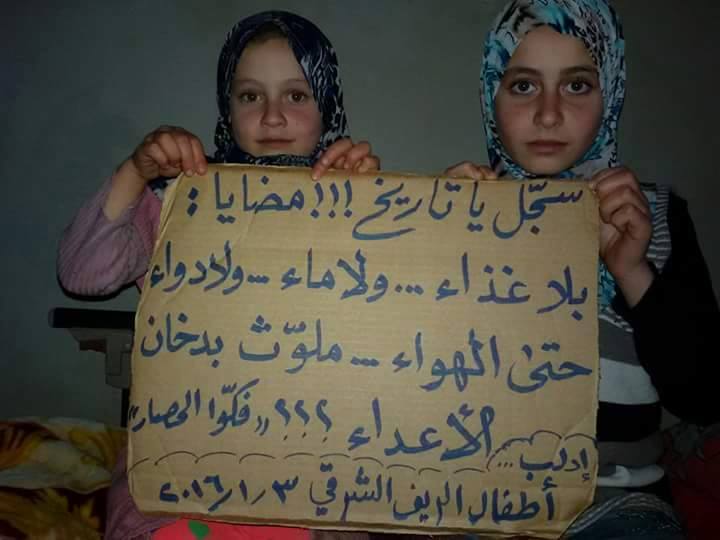 سجّل يا تاريخ !!! مضايا :
بلا غذاء ... ولا ماء ... ولا دواء
حتىٰ الهواء ... ملوّث بدخان
الأعداء ؟؟؟ "فكّوا الحصار"
إدلب ...
أطفال الريف الشرقي ٢٠١٦/١/٣